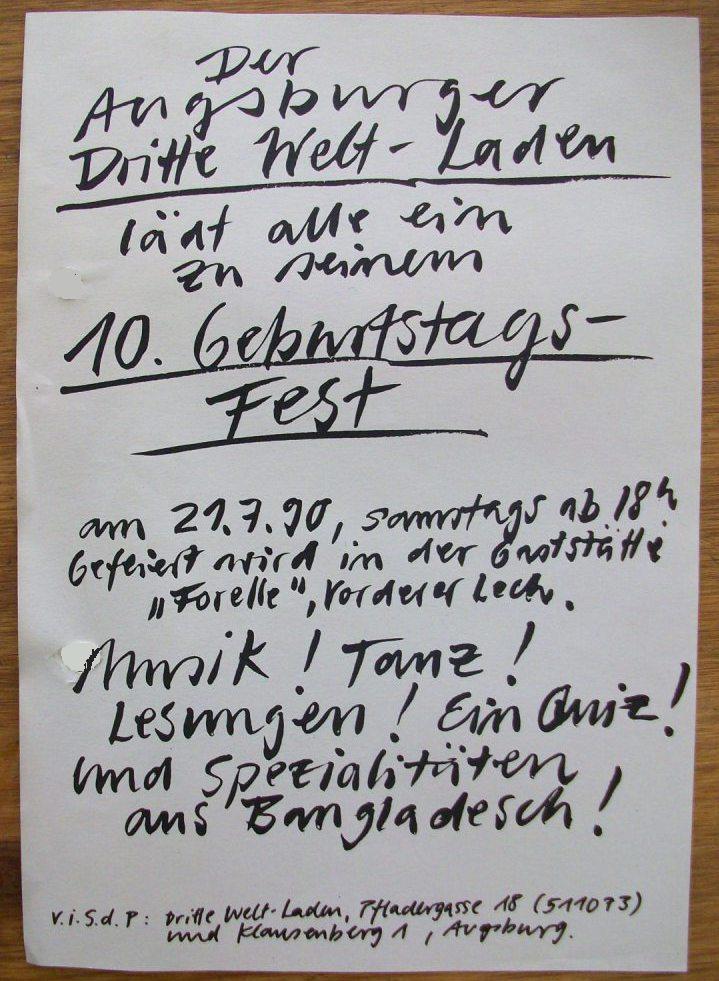 Der
Augsburger
Dritte Welt-Laden
lädt alle ein
zu seinem
10. Geburtstags-
Fest
am 21.7.90, samstags ab 18h
Gefeiert wird in der Gaststätte
„Forelle“, Vorderer Lech.
Musik! Tanz!
Lesungen! Ein Quiz!
und Spezialitäten
aus Bangladesch!
V.i.S.d.P: Dritte Welt-Laden, Pfladergasse 18 (511073)
und Klausenberg 1, Augsburg.